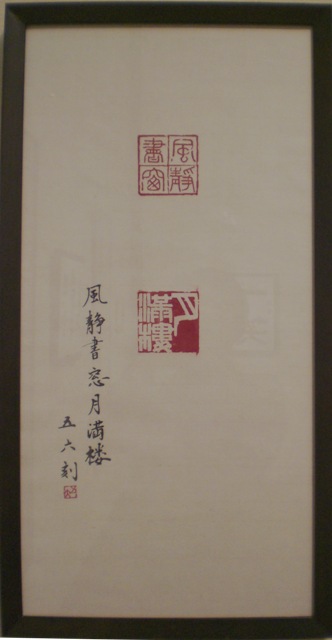 風靜書窗
月滿樓
風靜書窓月満楼
五六刻